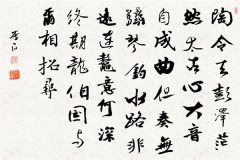 陶令去彭澤茫
然太古心大音
自成曲但奏無
絃琴釣水路非
遠連鰲意何深
終期龍伯國与
爾相招尋